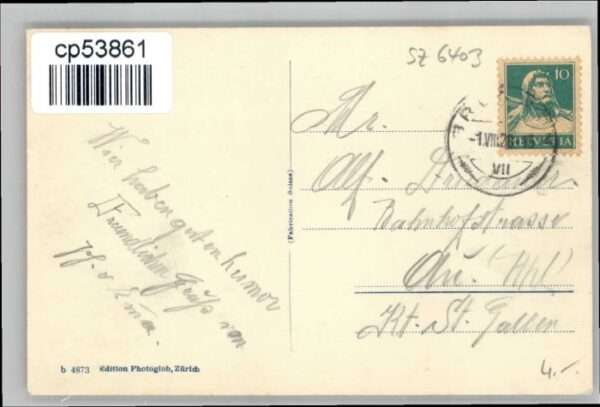 cp53861
SZ 6403
10
HELVETIA
-1.VIII.2
VII
Wir haben guten humor
Freundlichen Gruß von
Mr.
Alf.
Bahnhofstrasse
Au. (Rhl)
Kt. St. Gallen
(Fabrication Suisse)
b 4873 Edition Photoglob, Zürich
4.-